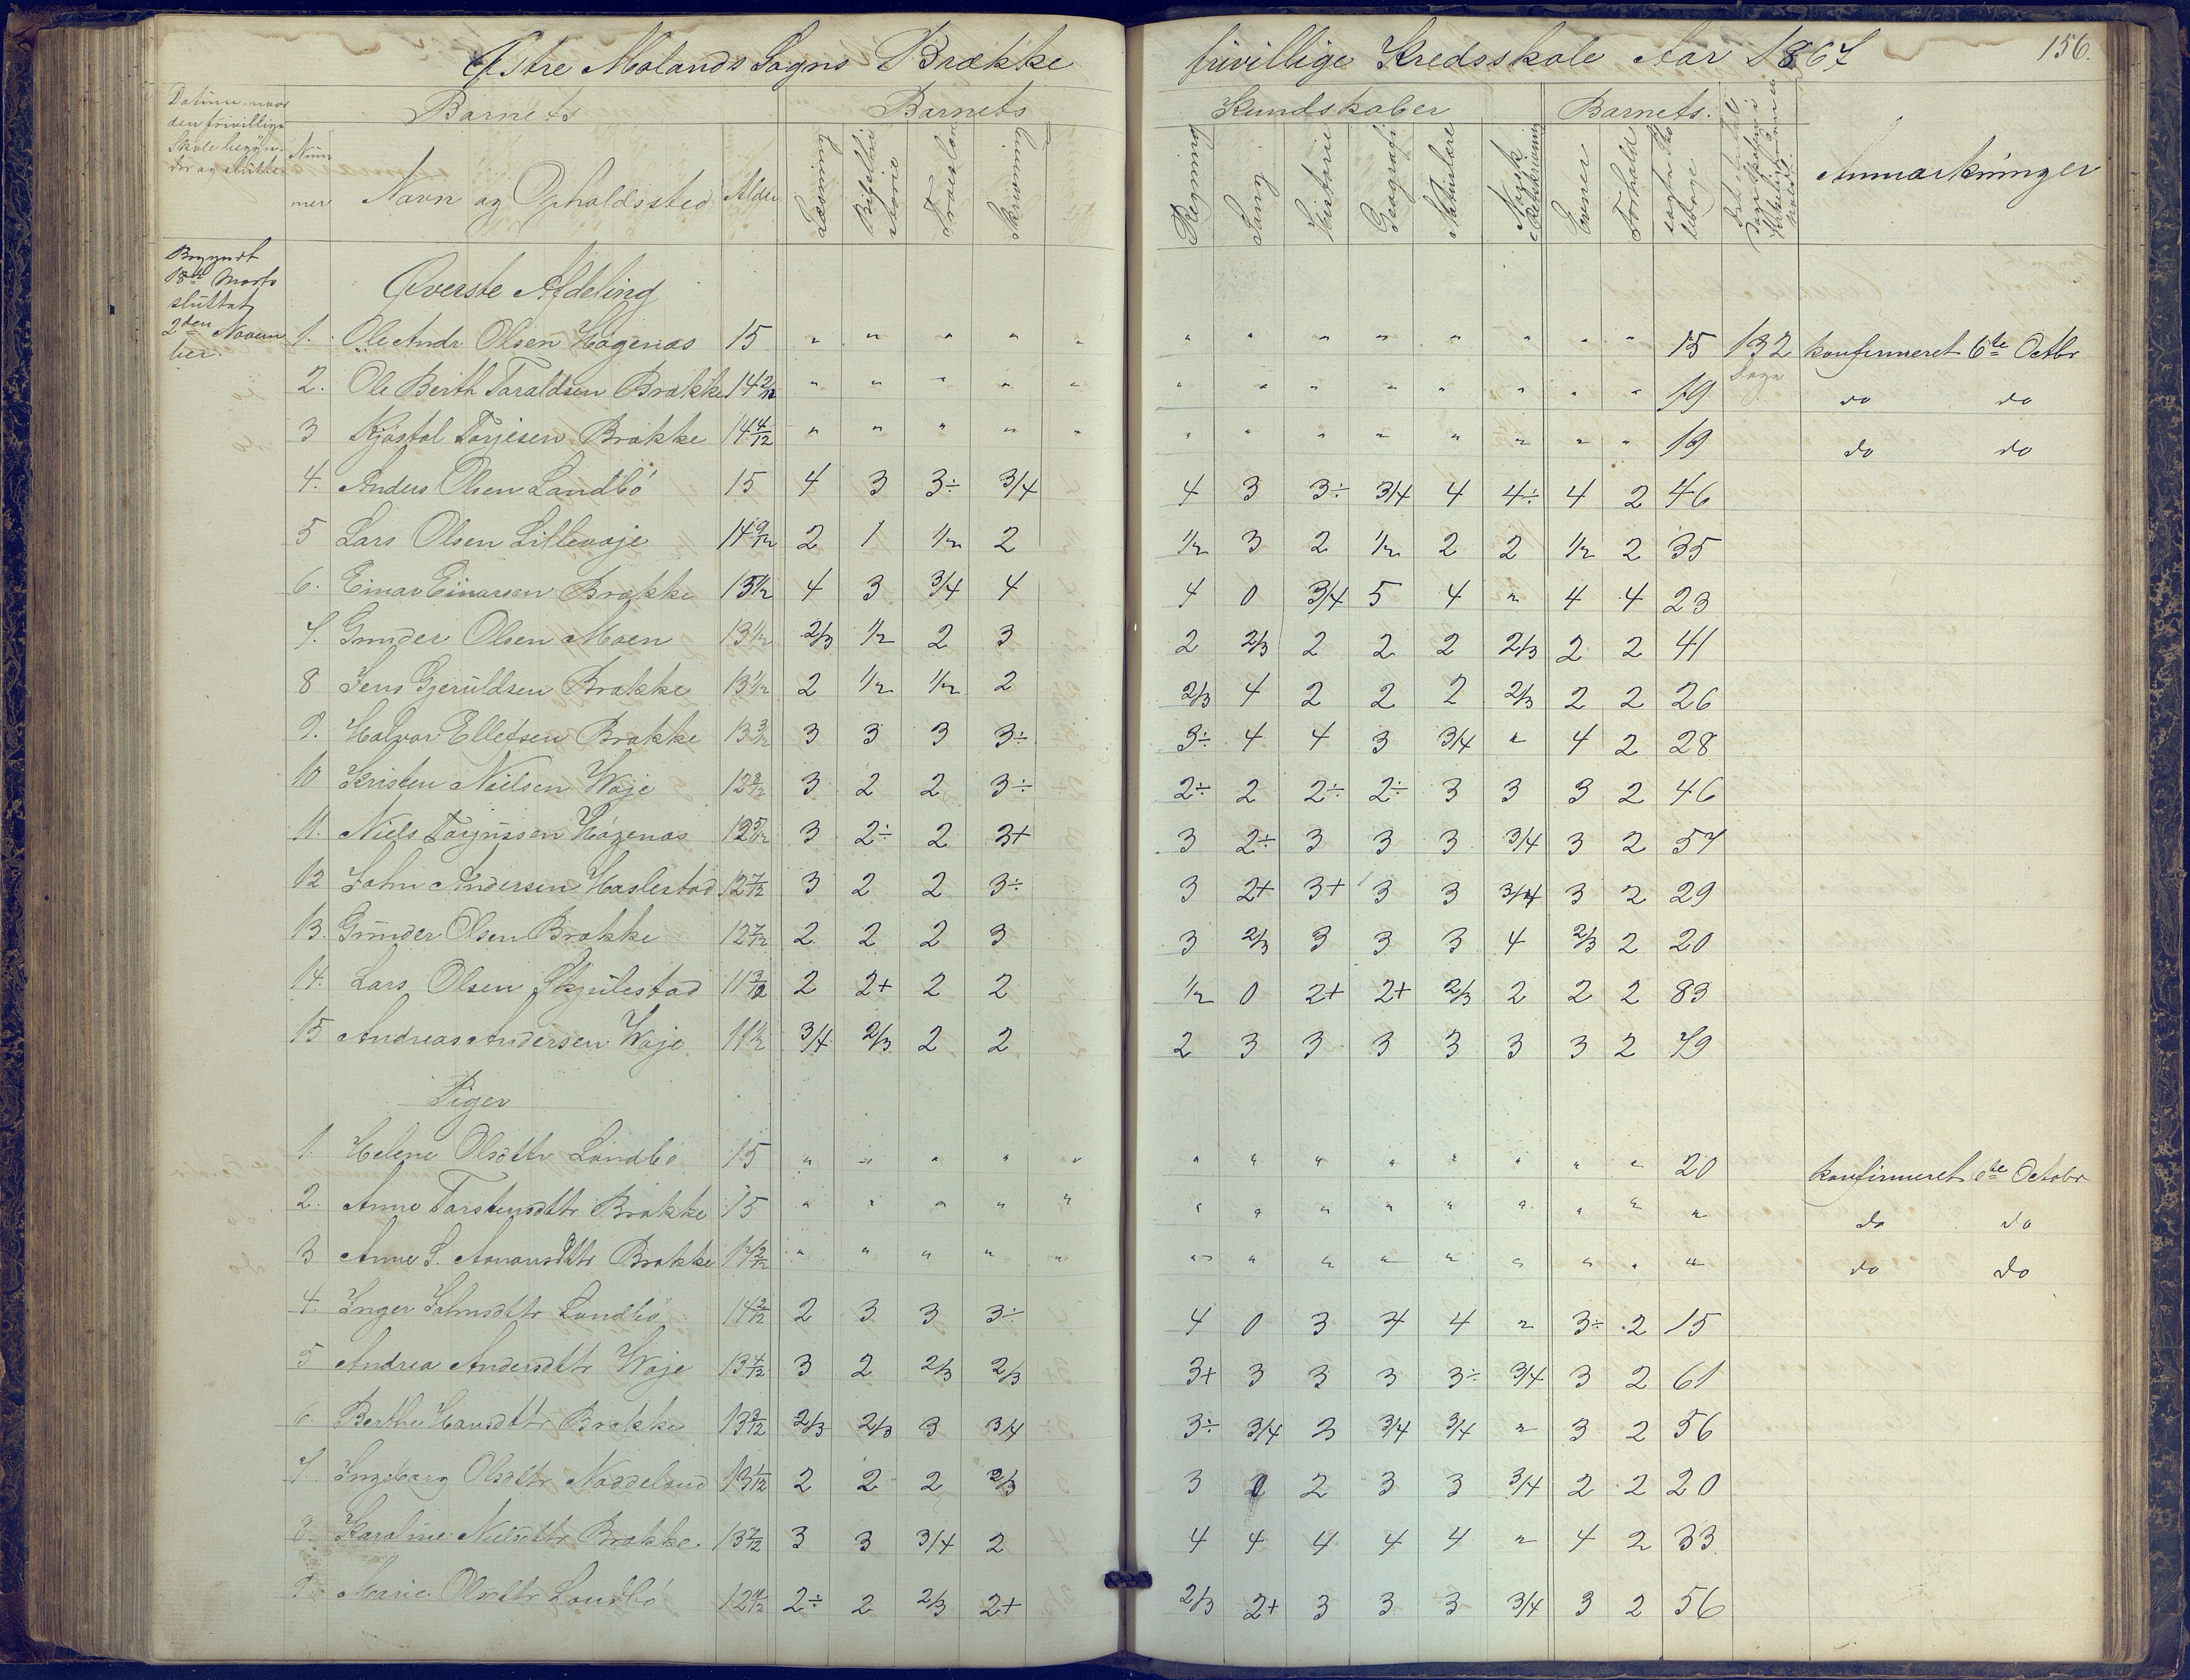 Østre Molands Sogns Brække frivillige Kredsskole Aar 1867 156.
Datum, naar den frivillige Skole begynder og slutter
Nummer
Barnets Barnets Kundskaber Barnets. Anmærkninger
Navn og Opholdssted Alder Læsning Bibelhistorie Troeslære Skrivning Regning Sang Historie Geografi Naturlære Norsk Retskrivning Evner Forhold
Begyndt 18de Marts sluttet 2den November.
Øverste Afdeling
1. Ole Andr Olsen Hagenæs 15 " " " " " " " " " " " " " 15 132 Dage konfirmeret 6te Octbr
2. Ole Berth Taraldsen Brække 14 2/12 " " " " " " " " " " " " " 19 do do
3 Kjøstol Terjesen Brække 14 4/12 " " " " " " " " " " " " " 19 do do
4. Anders Olsen Landbö 15 4 3 3÷ 3/4 4 3 3÷ 3/4 4 4÷ 4 2 46
5 Lars Olsen Lillevaje 14 9/12 2 1 1/2 2 1/2 3 2 1/2 2 2 1/2 2 35
6. Einar Einarsen Brække 13 1/2 4 3 3/4 4 4 0 3/4 5 4 " 4 4 23
7. Gunder Olsen Moen 13 1/12 2/3 1/2 2 3 2 2/3 2 2 2 2/3 2 2 41
8 Jens Gjeruldsen Brække 13 1/12 2 1/2 1/2 2 2/3 4 2 2 2 2/3 2 2 26
9. Halvor Ellefsen Brække 13 3/12 3 3 3 3÷ 3÷ 4 4 3 3/4 " 4 2 28
10 Kristen Nielsen Waje 12 9/12 3 2 2 3÷ 2÷ 2 2÷ 2÷ 3 3 3 2 46
11. Niels Torjussen Hagenæs 12 5/12 3 2÷ 2 3+ 3 2÷ 3 3 3 3/4 3 2 57
12 John Andersen Haslestad 12 7/12 3 2 2 3÷ 3 2+ 3+ 3 3 3/4 3 2 29
13. Gunder Olsen Brække 12 7/12 2 2 2 3 3 2/3 3 3 3 4 2/3 2 20
14. Lars Olsen Skjulestad 11 3/12 2 2+ 2 2 1/2 0 2+ 2+ 2/3 2 2 2 83
15 Andreas Andersen Waje 11 1/2 3/4 2/3 2 2 2 3 3 3 3 3 3 2 79
Piger
1. Helene Olsdttr Landbö 15 " " " " " " " " " " " " " 20 konfirmeret 6te Octobr
2. Anne Torstensdttr Brække 15 " " " " " " " " " " " " " " do do
3 Anne S. Aanonsdttr Brække 14 2/12 " " " " " " " " " " " " " " do do
4. Inger Johnsdttr Landbö 14 2/12 2 3 3 3÷ 4 0 3 4 4 " 3÷ 2 15
5 Andrea Andersdttr Waje 13 4/12 3 2 2/3 2/3 3+ 3 3 3 3÷ 3/4 3 2 61
6. Berthe Hansdttr Brække 13 3/12 2/3 2/3 3 3/4 3÷ 3/4 3 3/4 3/4 " 3 2 56
7 Ingeborg Olsdttr Næddelund 13 1/12 2 2 2 2/3 3 2 3 3 3/4 2 2 20
8. Karoline Nielsdttr Brække. 13 7/12 3 3 3/4 2 4 4 4 4 4 " 4 2 33
9. Marie Olsdttr Landbö 12 4/12 2÷ 2 2/3 2+ 2/3 2+ 3 3 3 3/4 3 2 56